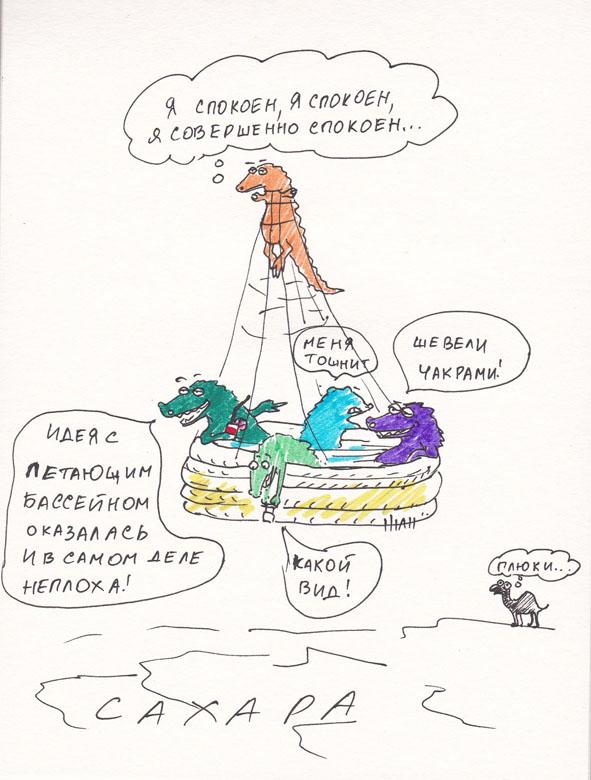 Я СПОКОЕН, Я СПОКОЕН,
Я СОВЕРШЕННО СПОКОЕН...
МЕНЯ
ТОШНИТ
ШЕВЕЛИ
ЧАКРАМИ!
ИДЕЯ С
ЛЕТАЮЩИМ
БАССЕЙНОМ
ОКАЗАЛАСЬ
И В САМОМ ДЕЛЕ
НЕПЛОХА!
КАКОЙ
ВИД!
ГЛЮКИ...
САХАРА